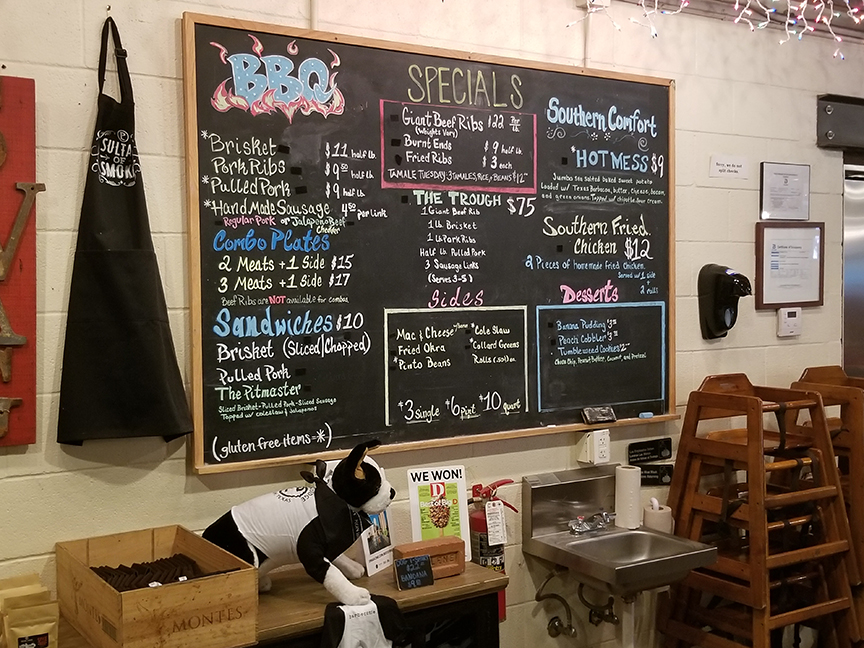 BBQ
*Brisket $11 half lb.
Pork Ribs $9.50 half lb.
*Pulled Pork $9 half lb.
*Hand Made Sausage 4.50 per link
Regular Pork or Jalapeno Beef
Cheddar
Combo Plates
2 Meats + 1 Side $15
3 Meats + 1 Side $17
Beef Ribs are NOT available for combos
Sandwiches $10
Brisket (Sliced|Chopped)
Pulled Pork
The Pitmaster
Sliced Brisket-Pulled Pork-Sliced Sausage
Topped w/ coleslaw & jalapenos
(gluten free items=*)
SPECIALS
Giant Beef Ribs $22 Per lb.
(Weights Vary)
Burnt Ends $9 half lb.
Fried Ribs $3 each
TAMALE TUESDAY: 3 TAMALES, RICE, & BEANS $12
THE TROUGH $75
1 Giant Beef Rib
1 lb. Brisket
1 lb. Pork Ribs
Half lb. Pulled Pork
3 Sausage Links
(Serves 3-5)
Sides
Mac & Cheese *Cole Slaw
Fried Okra *Collard Greens
*Pinto Beans Rolls (.50) ea.
$3 single $6 pint $10 quart
Southern Comfort
*HOT MESS $9
Jumbo sea salted baked sweet potato
Loaded w/ Texas Barbacoa, butter, cheese, bacon,
and green onions. Topped w/ chipotle sour cream.
Southern Fried
Chicken $12
2 Pieces of homemade fried chicken
Served w/ 1 side
2 rolls
Desserts
Banana Pudding $3.50
Peach Cobbler $3.50
Tumbleweed Cookies $2
Choco Chip, Peanut Butter, Coconut, and Pretzel
SULTAN
OF
SMOKE
Sorry, we do not
split checks
WE WON!
D
Best of Big D
BANDANA
MONTES
TEXAS